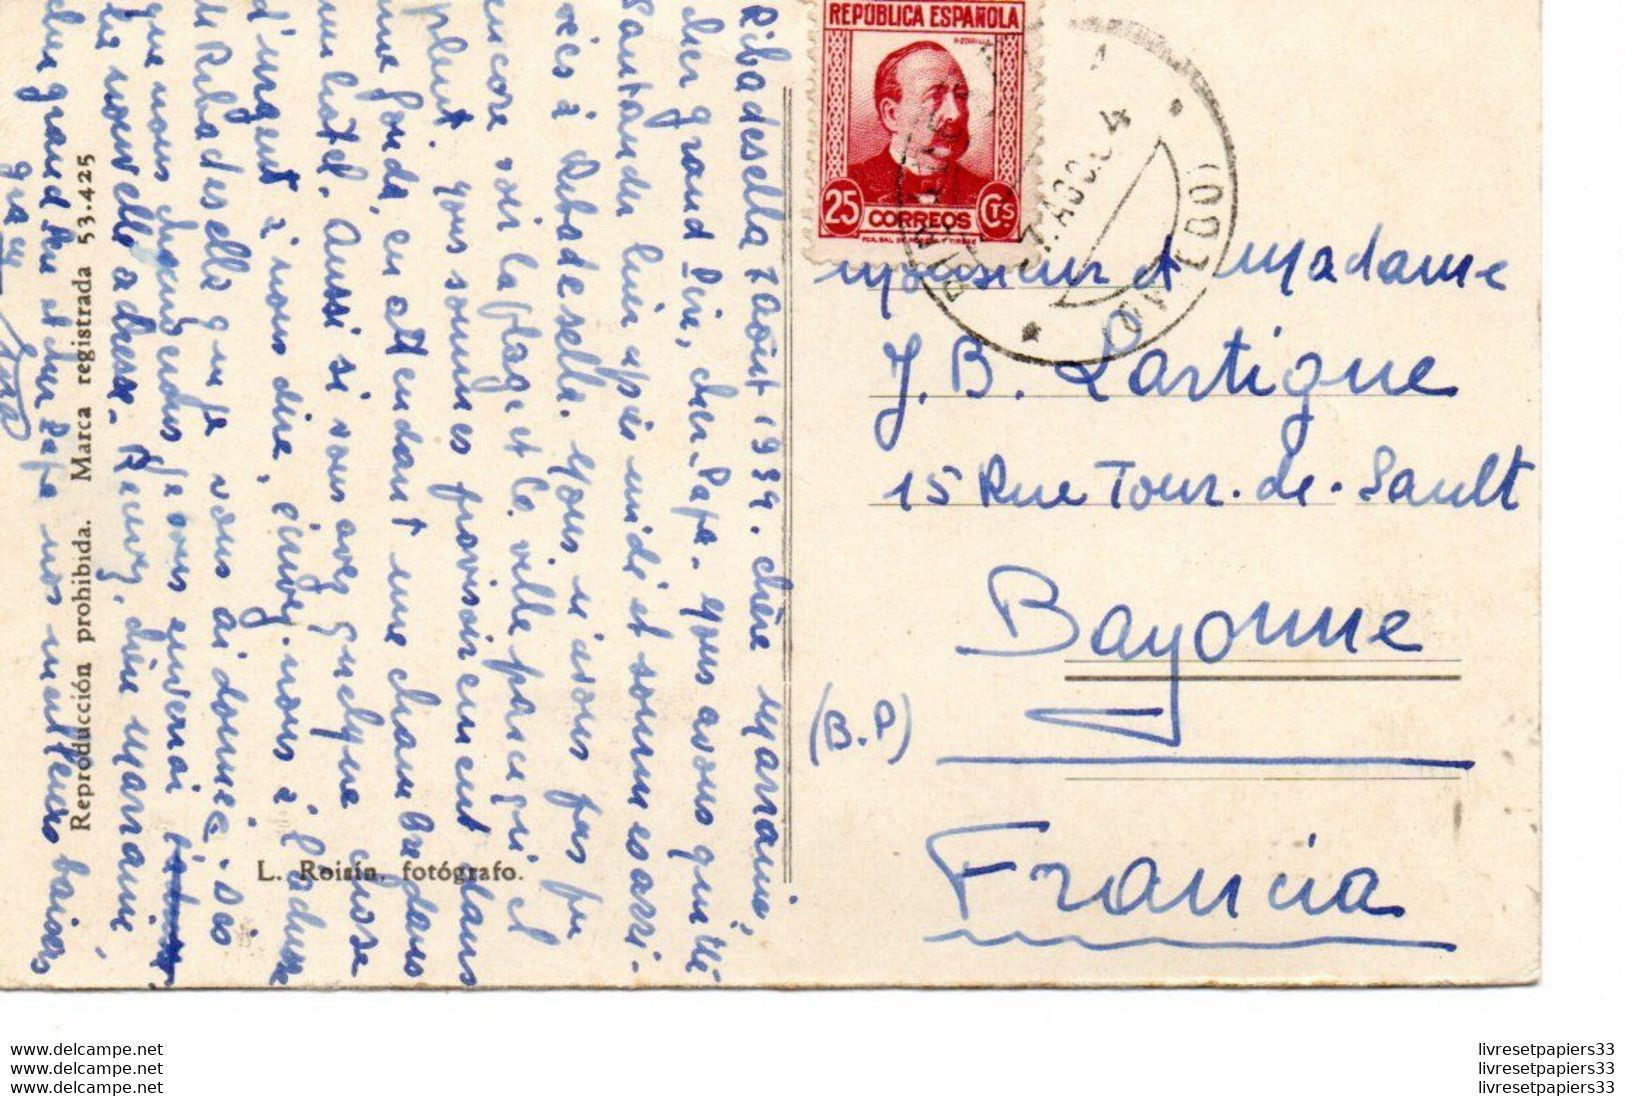 Ribadesella 7 Août 1934. Chère Marraine,
cher grand Père, cher Papa. Nous avons quitté
Santander hier après midi et sommes arri-
vés à Ribadesella. Nous n'avons pas pu
encore voir la plage et la ville parce qu'il
pleut. Nous sommes provisoirement dans
une fonda, en attendant une chambre dans
un hotel. Aussi si vous avez quelque chose
d'urgent à nous dire, envoyez-nous à l'adresse
de Ribadesella que je vous ai donnée. Dès
que nous je vous enverrai
la nouvelle adresse. Recevez, chère Marraine
cher grand Père et cher Papa nos meilleurs baisers
Reproducción prohibida. Marca registrada 53.425
L. Roisin, fotógrafo.
REPÚBLICA ESPAÑOLA
R. ZORRILLA
25 CORREOS CTS
Monsieur et Madame
J. B. Lartigue
15 Rue Tour-de-Sault
Bayonne
(B.P)
Francia
www.delcampe.net
www.delcampe.net
www.delcampe.net
livresetpapiers33
livresetpapiers33
livresetpapiers33